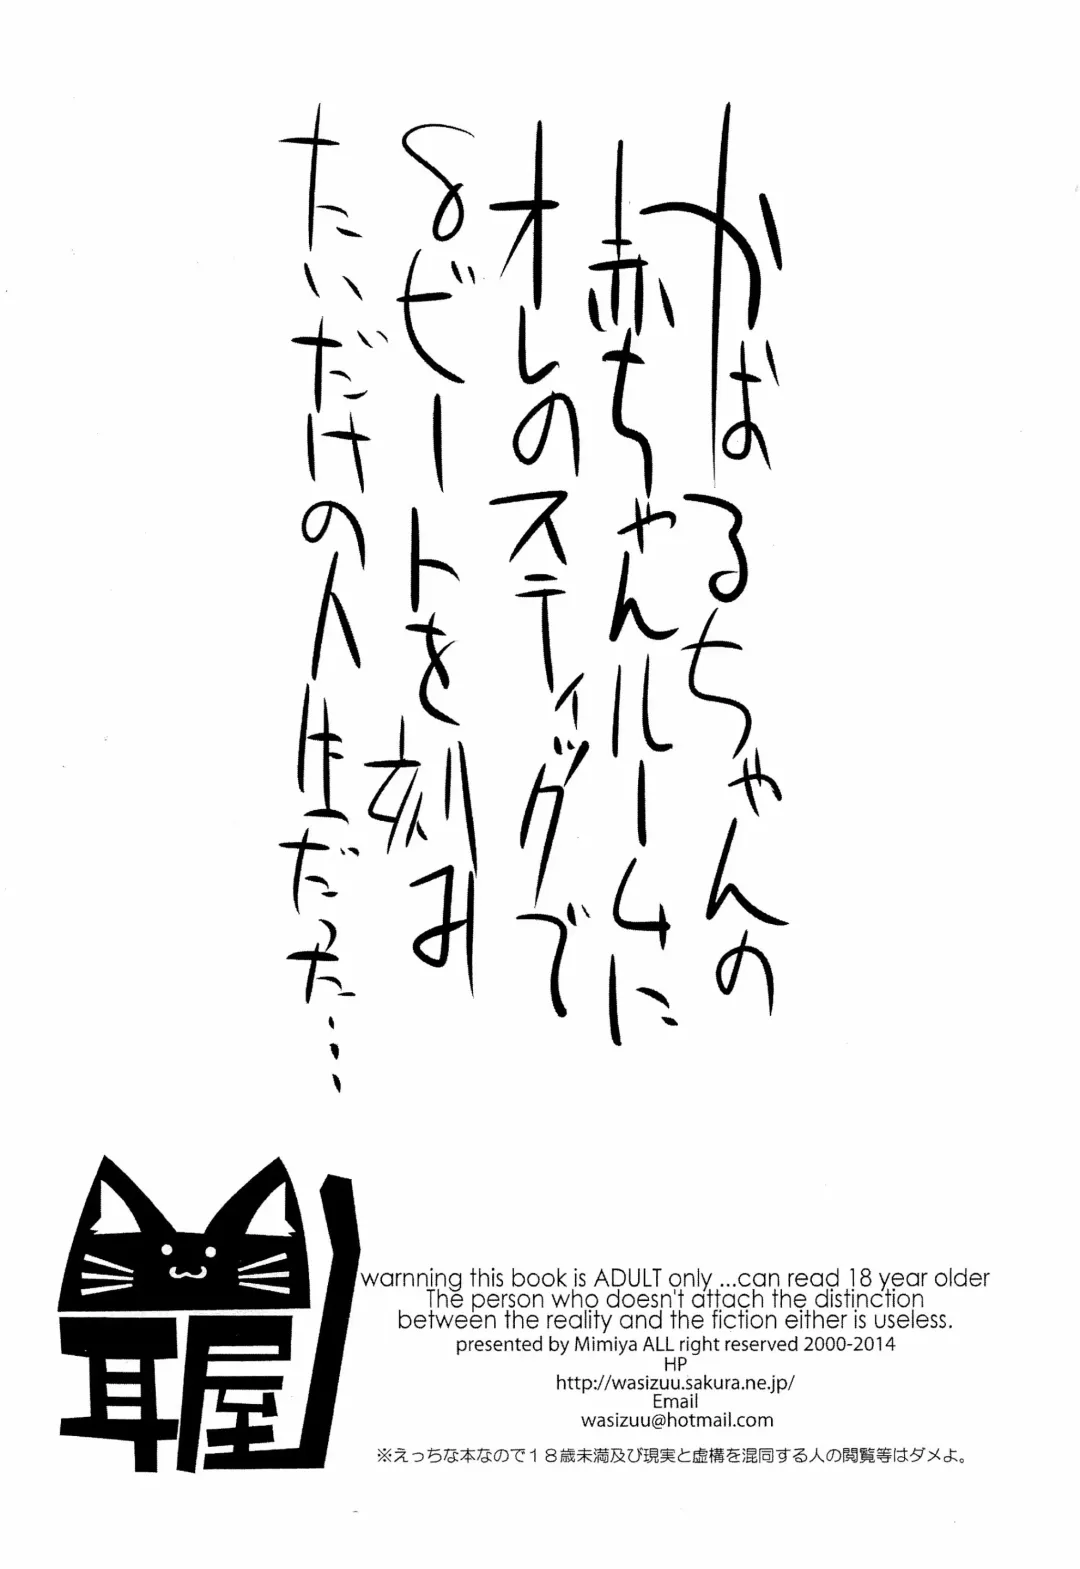 かばるちゃんの
赤ちゃんルームに
オレのスティッグで
8ビートを刻み
たいだけの人生だった…
耳屋
warnning this book is ADULT only ...can read 18 year older
The person who doesn't attach the distinction
between the reality and the fiction either is useless.
presented by Mimiya ALL right reserved 2000-2014
HP
http://wasizuu.sakura.ne.jp/
Email
wasizuu@hotmail.com
※えっちな本なので１８歳未満及び現実と虚構を混同する人の閲覧等はダメよ。